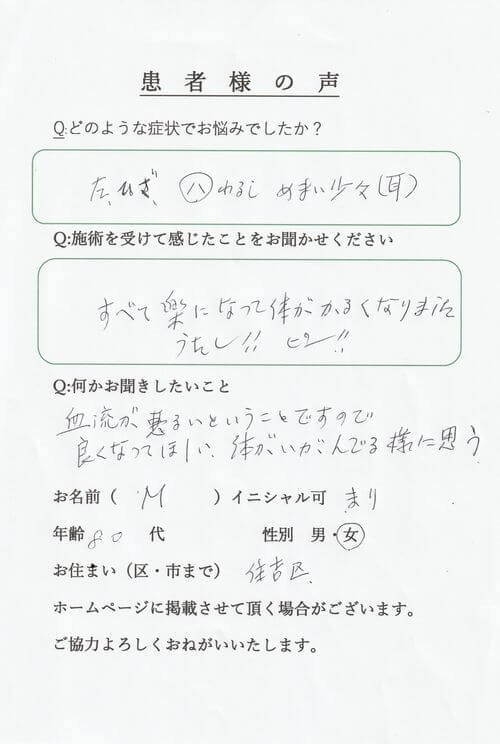 患者様の声
Q:どのような症状でお悩みでしたか？
左、ひざ、 ㊇わるし めまい少々(耳)
Q:施術を受けて感じたことをお聞かせください
すべて楽になって体がかるくなりました
うれし!! ピン!!
Q:何かお聞きしたいこと
血流が悪るいということですので
良くなってほしい、体がいがんでる様に思う
お名前（ M ）イニシャル可 まり
年齢 80 代 性別 男・女
お住まい（区・市まで） 住吉区
ホームページに掲載させて頂く場合がございます。
ご協力よろしくおねがいいたします。